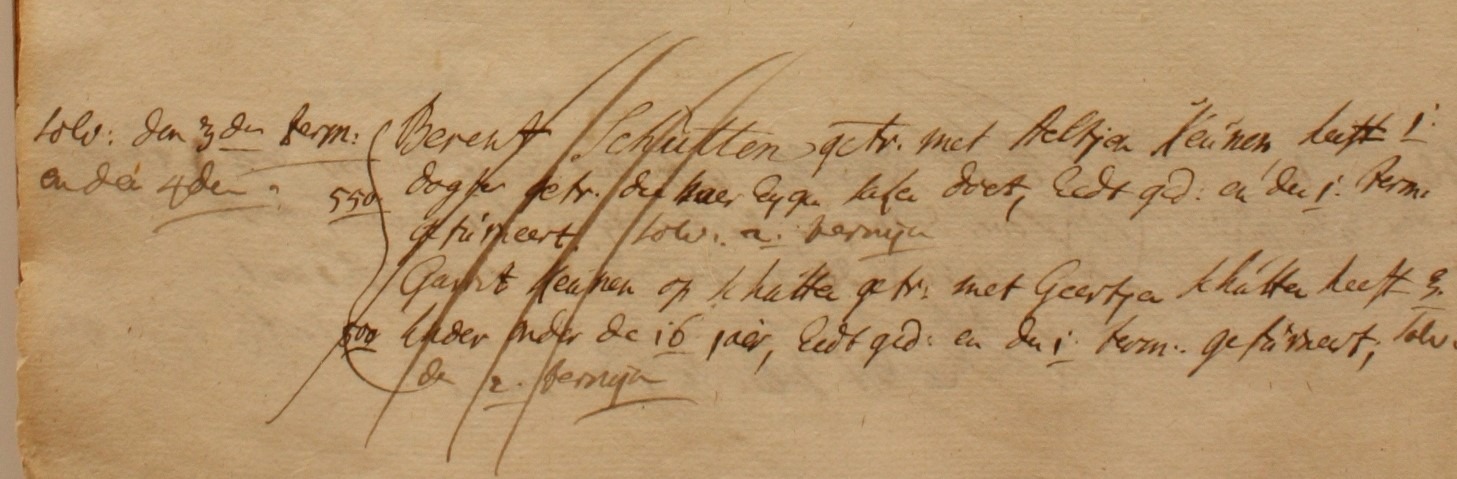 solv: den 3 den term:
en den 4 den
Berent Schutten getr. met Aeltjen Keunen heeft 1.
550 dogter getr. die haer eygen saken doet, Eedt ged: en den 1. term:
gefurneert. solv: 2. termijn
Garrit Keunen op Schutten getr: met Geertjen Schutten heeft 3.
500 kinder onder de 16 jaer, Eedt ged: en den 1. term: gefurneert, solv:
de 2. termijn